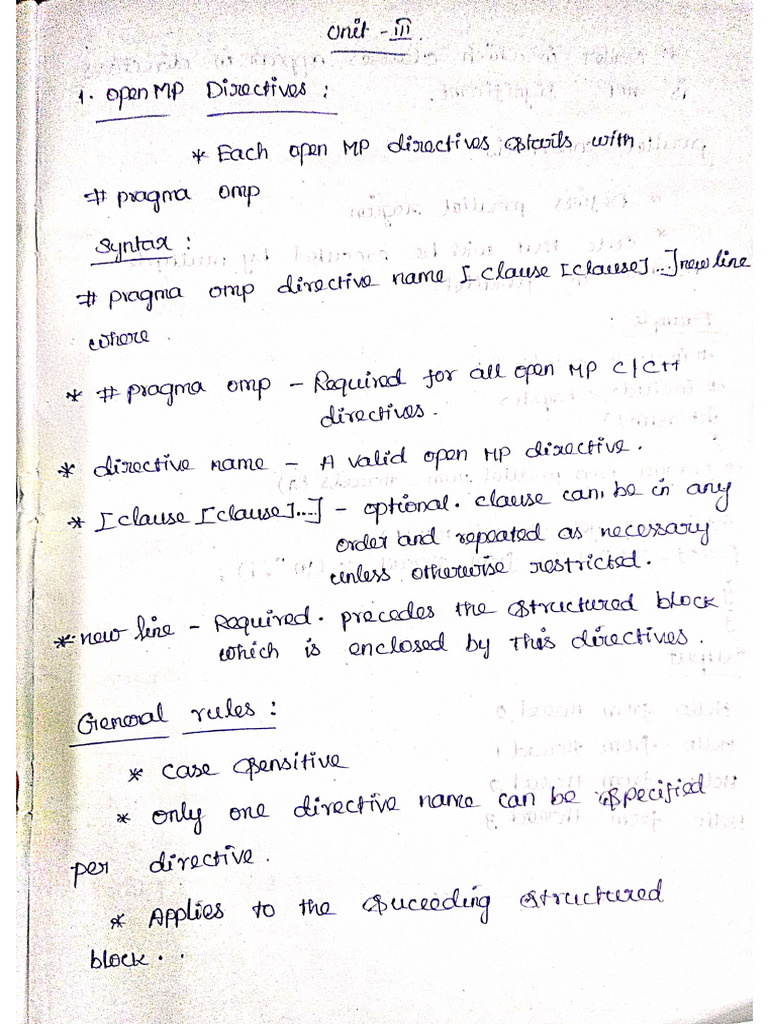 Unit - III
1. Open MP Directives :
* Each open MP directives starts with
# pragma omp
Syntax :
# pragma omp directive name [clause [clause]...] new line
where .
* # pragma omp - Required for all open MP C/C++
directives.
* directive name - A valid open MP directive.
* [clause [clause]...] - optional. clause can be in any
order and repeated as necessary
unless otherwise restricted.
* new line - Required. precedes the structured block
which is enclosed by this directives.
General rules :
* case sensitive
* only one directive name can be specified
per directive.
* Applies to the suceeding structured
block. .